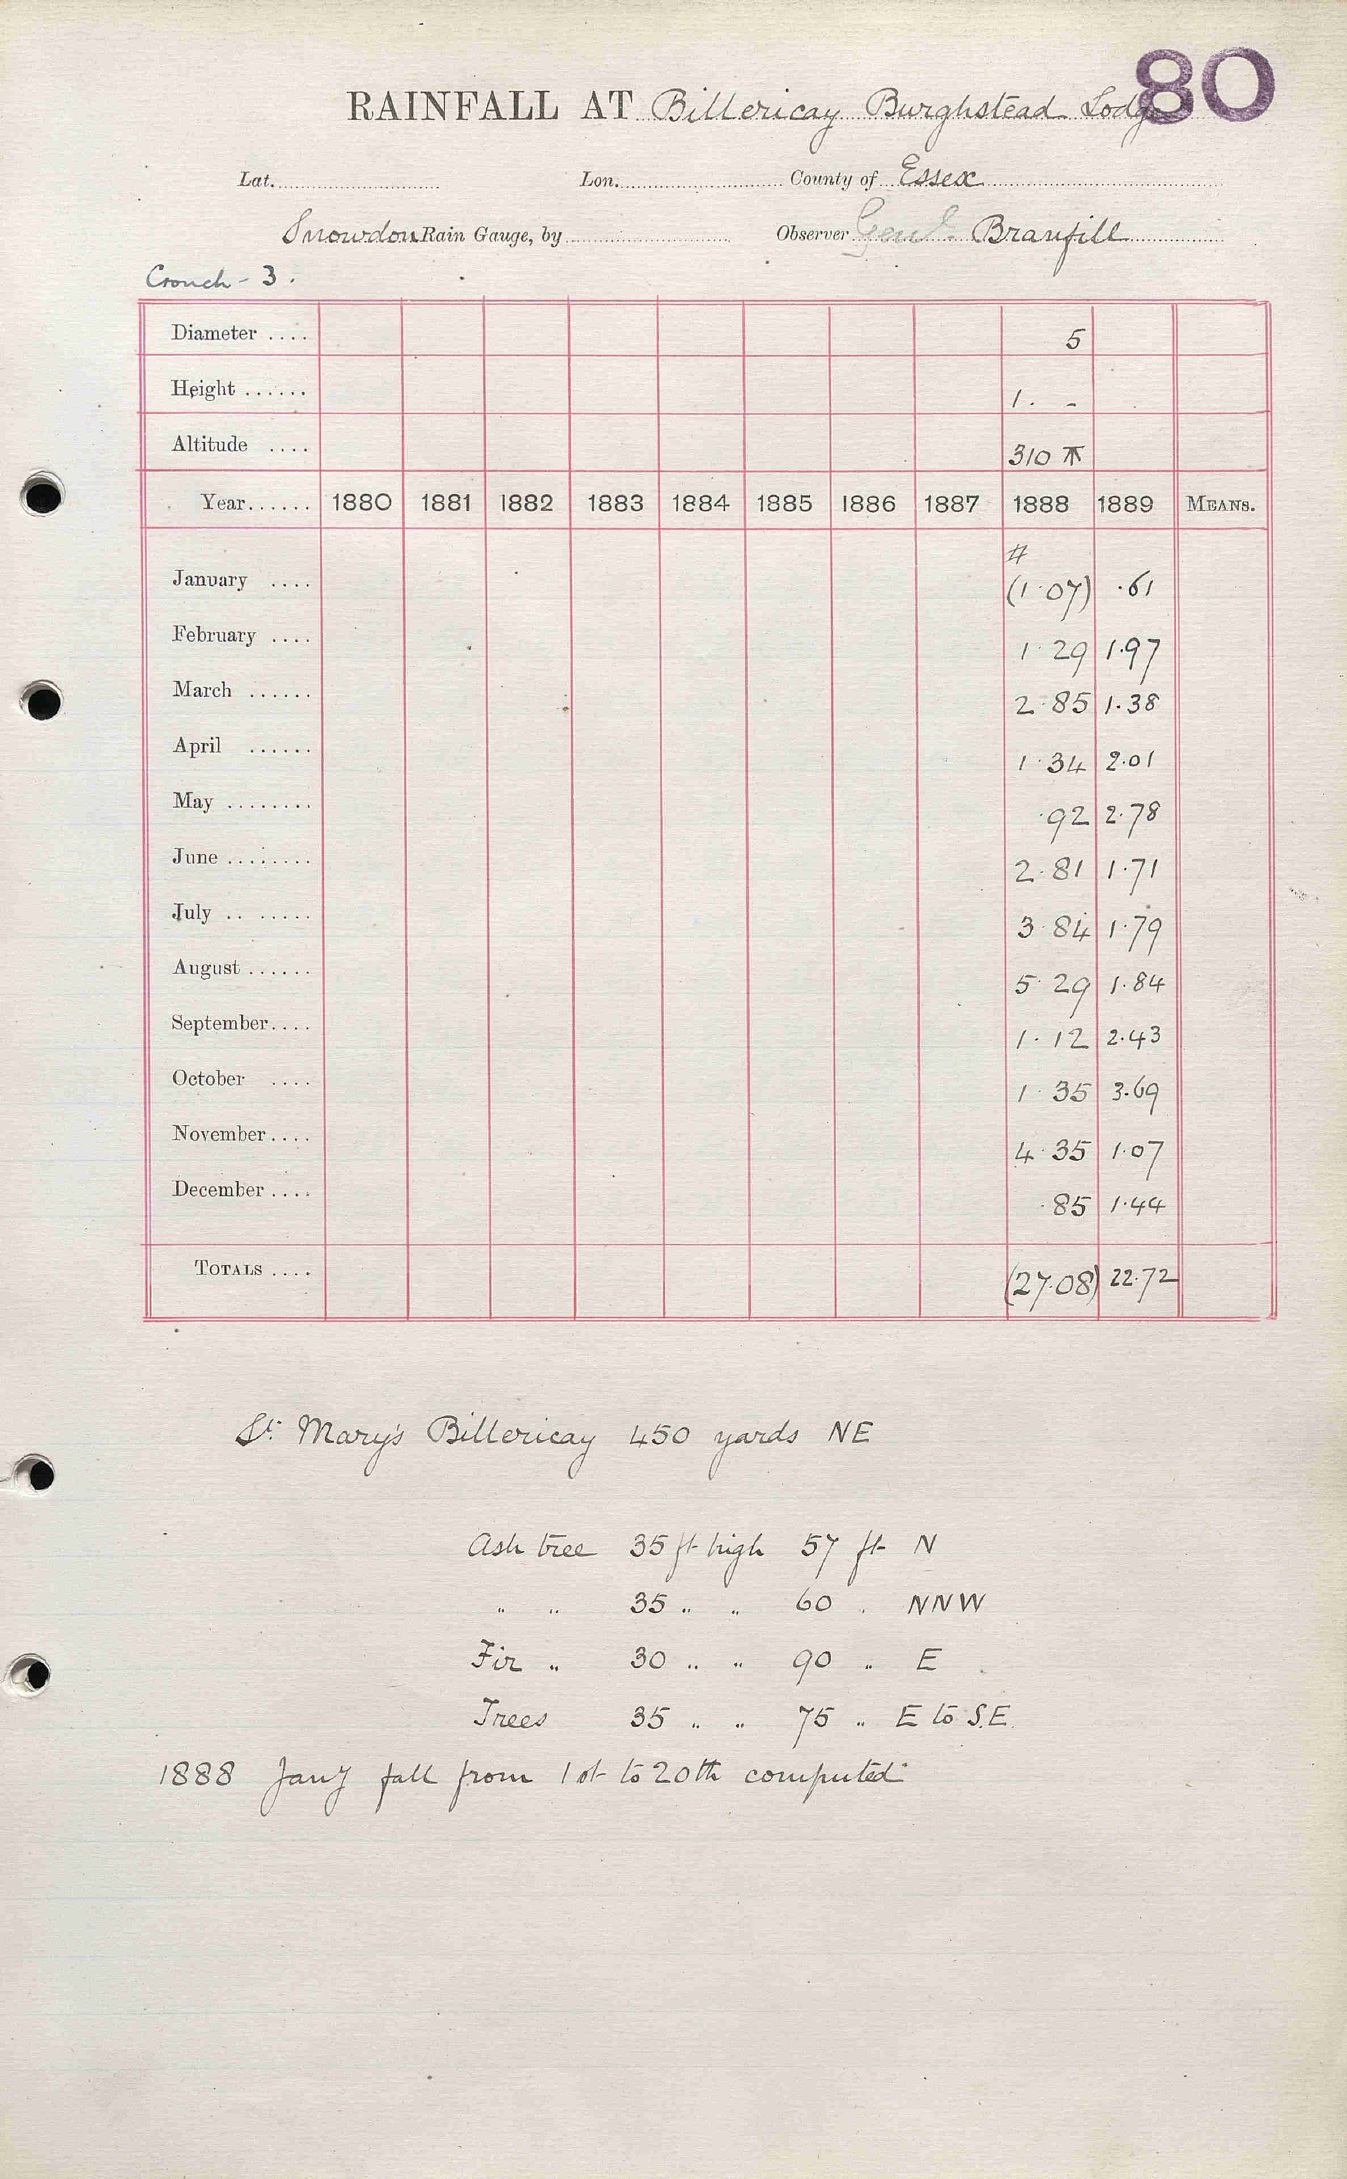 80
RAINFALL AT Billericay Burghstead Lodge
Lat. Lon. County of Essex
Snowdon Rain Gauge, by Observer Genl. Branfill
Crouch - 3.
Diameter .... 5
Height ...... 1. -
Altitude .... 310
Year...... 1880 1881 1882 1883 1884 1885 1886 1887 1888 1889 MEANS.
#
January .... (1.07) .61
February .... 1.29 1.97
March ...... 2.85 1.38
April ...... 1.34 2.01
May ........ .92 2.78
June ........ 2.81 1.71
July .. ..... 3.84 1.79
August ...... 5.29 1.84
September.... 1.12 2.43
October .... 1.35 3.69
November.... 4.35 1.07
December .... .85 1.44
TOTALS .... (27.08) 22.72
St. Mary's Billericay 450 yards NE
Ash tree 35 ft high 57 ft N
" " 35 " " 60 " NNW
Fir " 30 " " 90 " E
Trees 35 " " 75 " E to S.E.
1888 Jany fall from 1st to 20th computed